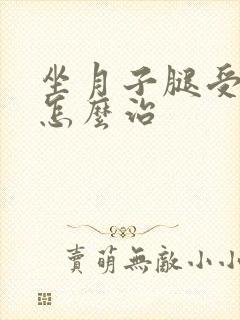 坐月子腿受
怎麼治
賣萌無敵小小